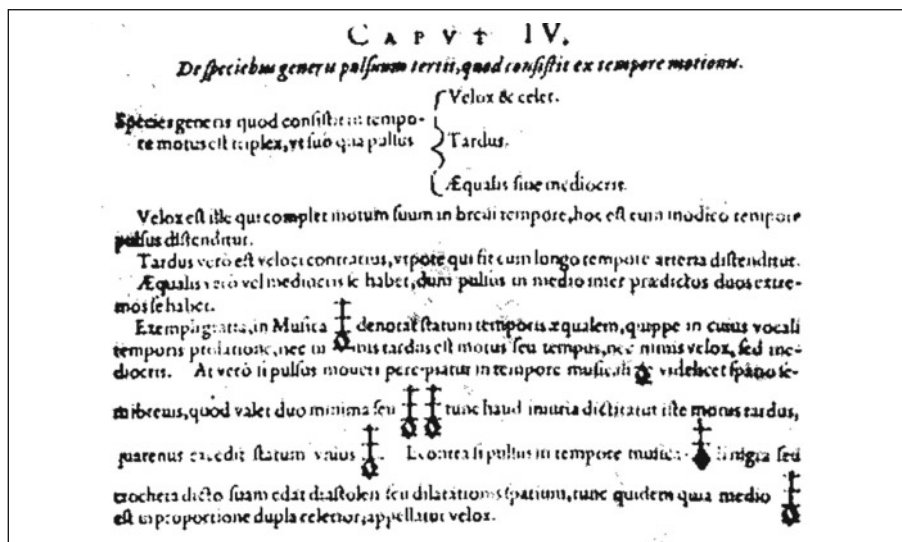 CAPVT IV.
De speciebus generis pulsuum tertii, quod consistit ex tempore motionis.
Velox & celer.
Species generis quod consistit in tempo-
re motus est triplex, vt sub qua pulsus
Tardus.
Æqualis siue mediocris.
Velox est ille qui complet motum suum in breui tempore, hoc est cum modico tempore
pulsus distenditur.
Tardus verò est veloci contrarius, vtpote qui fit cum longo tempore arteria distenditur.
Æqualis verò vel mediocris se habet, dum pulsus in medio inter prædictos duos extre-
mos se habet.
Exempli gratia, in Musica denotat statum temporis æqualem, quippe in cuius vocali
temporis prolatione, nec nimis tardus est motus seu tempus, nec nimis velox, sed me-
diocris. At verò si pulsus moueri percipiatur in tempore musicali videlicet spatio se-
mibreuis, quod valet duo minima seu tunc haud iniuria dictitatur iste motus tardus,
quatenus excedit statum vnius E contra si pulsus in tempore musica nigra seu
crocheta dicto suam edat diastolen seu dilatationis spatium, tunc quidem quia medio
est in proportione dupla celerior, appellatur velox.